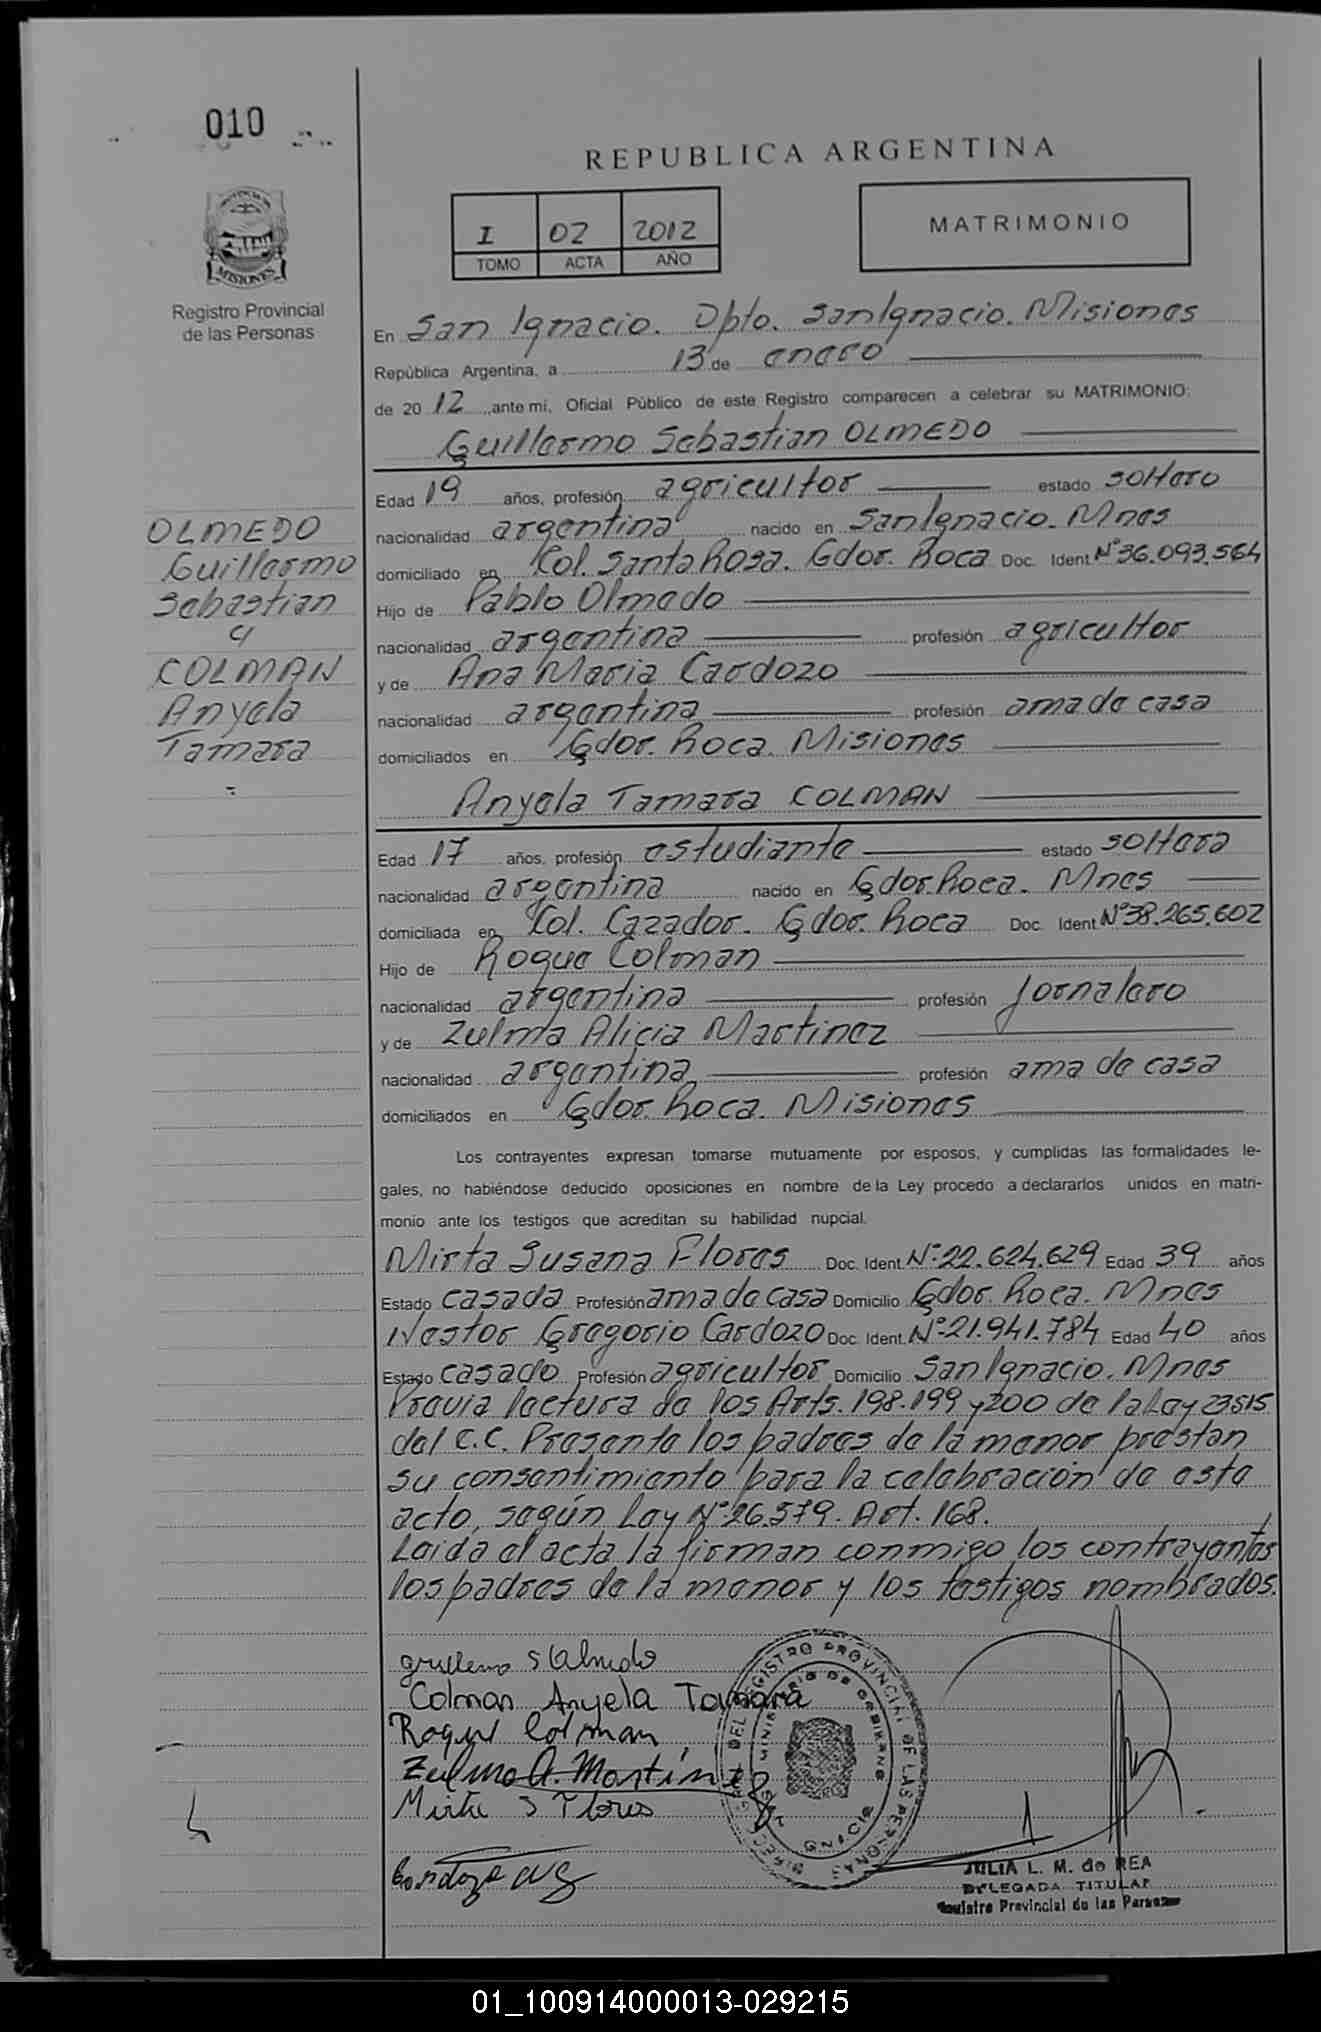 010
REPUBLICA ARGENTINA
PROVINCIA DE
MISIONES
Registro Provincial
de las Personas
I 02 2012
TOMO ACTA AÑO
MATRIMONIO
En San Ignacio. Dpto. San Ignacio. Misiones
República Argentina, a 13 de enero
de 2012, ante mí, Oficial Público de este Registro comparecen a celebrar su MATRIMONIO:
Guillermo Sebastian OLMEDO
Edad 19 años, profesión agricultor estado soltero
nacionalidad argentina nacido en San Ignacio. Mnes
domiciliado en Col. Santa Rosa. Gdor. Roca Doc. Ident Nº 36.093.564
Hijo de Pablo Olmedo
nacionalidad argentina profesión agricultor
y de Ana Maria Cardozo
nacionalidad argentina profesión ama de casa
domiciliados en Gdor. Roca. Misiones
OLMEDO
Guillermo
Sebastian
y
COLMAN
Anyela
Tamara
Anyela Tamara COLMAN
Edad 17 años, profesión estudiante estado soltera
nacionalidad argentina nacido en Gdor. Roca. Mnes
domiciliada en Col. Cazador. Gdor. Roca Doc. Ident Nº 38.265.602
Hijo de Roque Colman
nacionalidad argentina profesión Jornalero
y de Zulma Alicia Martinez
nacionalidad argentina profesión ama de casa
domiciliados en Gdor. Roca. Misiones
Los contrayentes expresan tomarse mutuamente por esposos, y cumplidas las formalidades le-
gales, no habiéndose deducido oposiciones en nombre de la Ley procedo a declararlos unidos en matri-
monio ante los testigos que acreditan su habilidad nupcial.
Mirta Susana Flores Doc. Ident. Nº 22.624.629 Edad 39 años
Estado casada Profesión ama de casa Domicilio Gdor. Roca. Mnes
Nestor Gregorio Cardozo Doc. Ident. Nº 21.941.784 Edad 40 años
Estado casado Profesión agricultor Domicilio San Ignacio. Mnes
Previa lectura de los Arts. 198.199 y 200 de la Ley 23515
del C.C. Presente los padres de la menor prestan
su consentimiento para la celebración de este
acto, según Ley Nº 26.579. Art. 168.
Leida el acta la firman conmigo los contrayentes
los padres de la menor y los testigos nombrados.
Guillermo S Olmedo
Colman Anyela Tamara
Roque Colman
Zulma A. Martinez
Mirta S Flores
Cardozo
DIRECC. DEL REGISTRO PROVINCIAL DE LAS PERSONAS
MINISTERIO DE GOBIERNO
SAN IGNACIO
JULIA L. M. de REA
DELEGADA TITULAR
Registro Provincial de las Personas
01_100914000013-029215